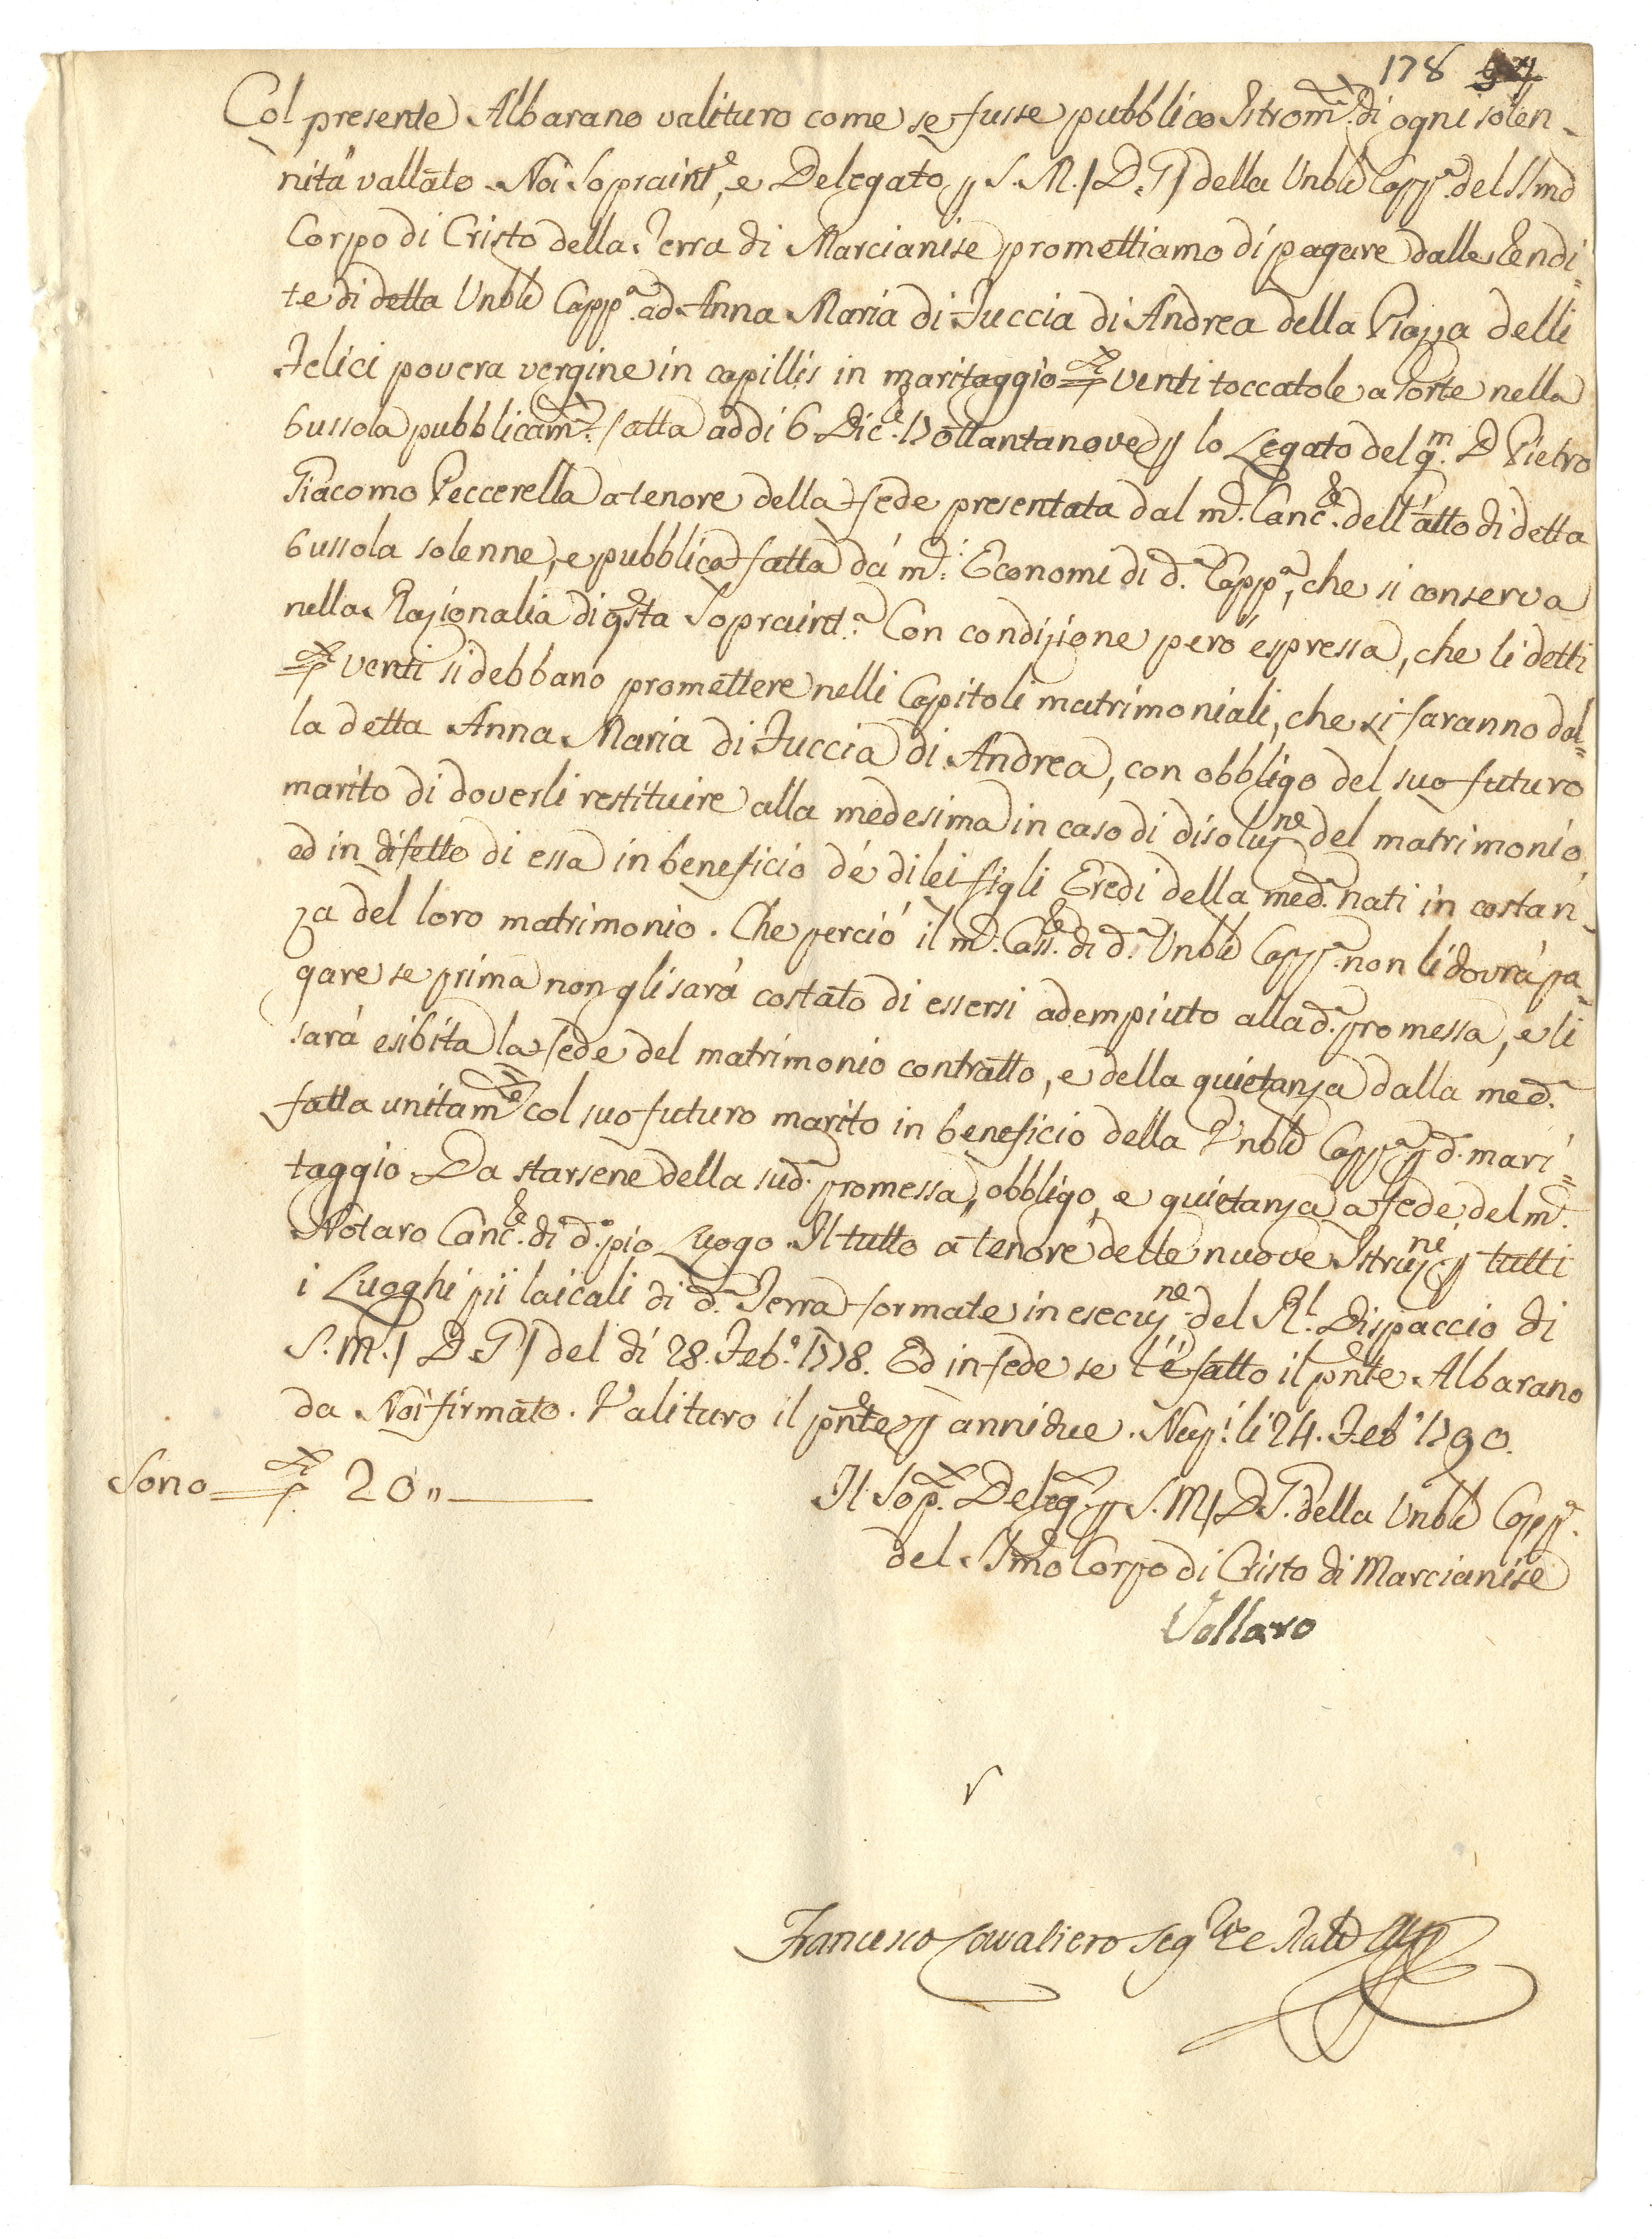 178
Col presente Albarano valituro come se fusse pubblico Istrom. di ogni solen-
nità vallato Noi Sopraint.e, e Delegato p S. M. / D. G / della Vnble Capp.a del SSmo
Corpo di Cristo della Terra di Marcianise promettiamo di pagare dalle Rendi=
te di detta Vnble Capp.a ad Anna Maria di Fuccia di Andrea della Piazza delli
Felici povera vergine in capillis in maritaggio venti toccatole a sorte nella
bussola pubblicam.te fatta addi 6 Dic.e 17ottantanove p lo Legato del q.m D Pietro
Giacomo Peccerella a tenore della fede presentata dal m.o Canc.e dell'atto di detta
bussola solenne, e pubblica fatta dá m.i Economi di d.a Capp.a, che si conserva
nella Razionalia di qsta Sopraint.a Con condizione però espressa, che li detti
venti si debbano promettere nelli Capitoli matrimoniali, che si faranno dal=
la detta Anna Maria di Fuccia di Andrea, con obbligo del suo futuro
marito di doverli restituire alla medesima in caso di disoluz.ne del matrimonio,
ed in difetto di essa in beneficio dé di lei figli Eredi della med.a nati in costan-
za del loro matrimonio. Che perciò il m.o Cass.e di d.a Vnble Capp.a non li dovrà pa-
gare se prima non gli sarà costato di essersi adempiuto alla d.a promessa, e li
sarà esibita la fede del matrimonio contratto, e della quietanza dalla med.a
fatta unitam.te col suo futuro marito in beneficio della Vnble Capp.a p d. mari=
taggio. Da starsene della sud.a promessa, obbligo, e quietanza a fede del m.o
Notaro Canc.e di d.o pio Luogo. Il tutto a tenore delle nuove Istruz.ni p tutti
i Luoghi pii laicali di d.a Terra formate in esecuz.ne del R.l Dispaccio di
S. M. / D. G / del dì 28. Feb.o 1778. Ed in fede se l'é fatto il pnte Albarano
da Noi firmato. Valituro il pnte p anni due. Nap.i li 24. Feb.o 1790.
Sono 20"
Il Sop. Deleg. p S. M / D G. della Vnble Capp.a
del SSmo Corpo di Cristo di Marcianise
Vollaro
Francesco Cavaliero Seg.rio e Rale